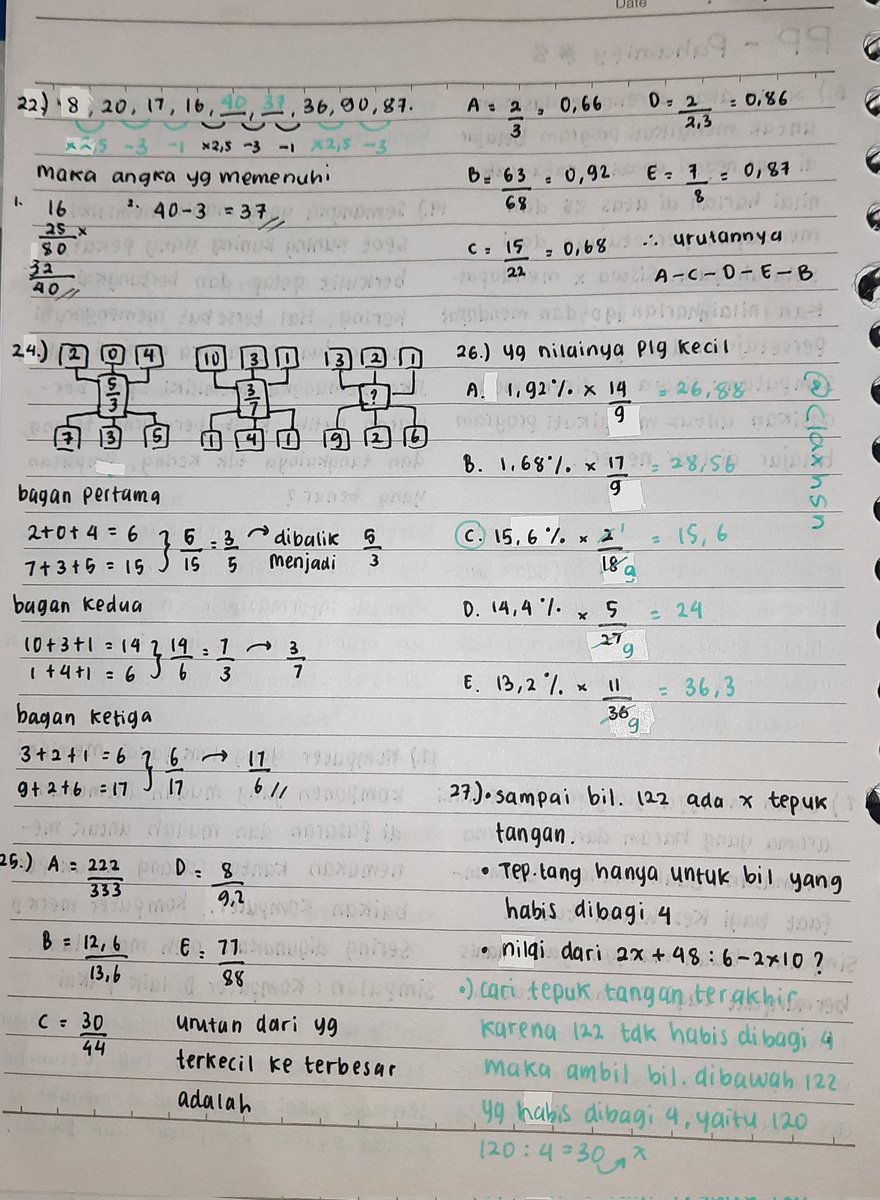 Date
22.) 8, 20, 17, 16, 40, 37, 36, 90, 87.
×2,5 -3 -1 ×2,5 -3 -1 ×2,5 -3
Maka angka yg memenuhi
1. 16
25 ×
80
32
40 //
2. 40-3 = 37 //
24.) 2 0 4
5/3
7 3 5
10 3 1
3/7
1 4 1
3 2 1
?
9 2 6
bagan pertama
2+0+4 = 6
7+3+5 = 15
6/15 = 3/5 → dibalik menjadi 5/3
bagan kedua
10+3+1 = 14
1+4+1 = 6
14/6 = 7/3 → 3/7
bagan ketiga
3+2+1 = 6
9+2+6 = 17
6/17 → 17/6 //
25.) A = 222/333 D = 8/9,2
B = 12,6/13,6 E = 77/88
C = 30/44 urutan dari yg
terkecil ke terbesar
adalah
A = 2/3 = 0,66 D = 2/2,3 = 0,86
B = 63/68 = 0,92 E = 7/8 = 0,87
C = 15/22 = 0,68 ∴ urutannya
A-C-D-E-B
26.) yg nilainya plg kecil
A. 1,92% × 14/9 = 26,88
B. 1,68% × 17/9 = 28,56
C. 15,6% × 2/18 1/9 = 15,6
D. 14,4% × 5/27 9 = 24
E. 13,2% × 11/36 9 = 36,3
@Claxhsn
27.) • sampai bil. 122 ada x tepuk
tangan.
• Tep.tang hanya untuk bil yang
habis dibagi 4
• nilai dari 2x + 48 : 6 - 2×10 ?
•) cari tepuk tangan terakhir
karena 122 tdk habis dibagi 4
maka ambil bil. dibawah 122
yg habis dibagi 4, yaitu 120
120 : 4 = 30 → x